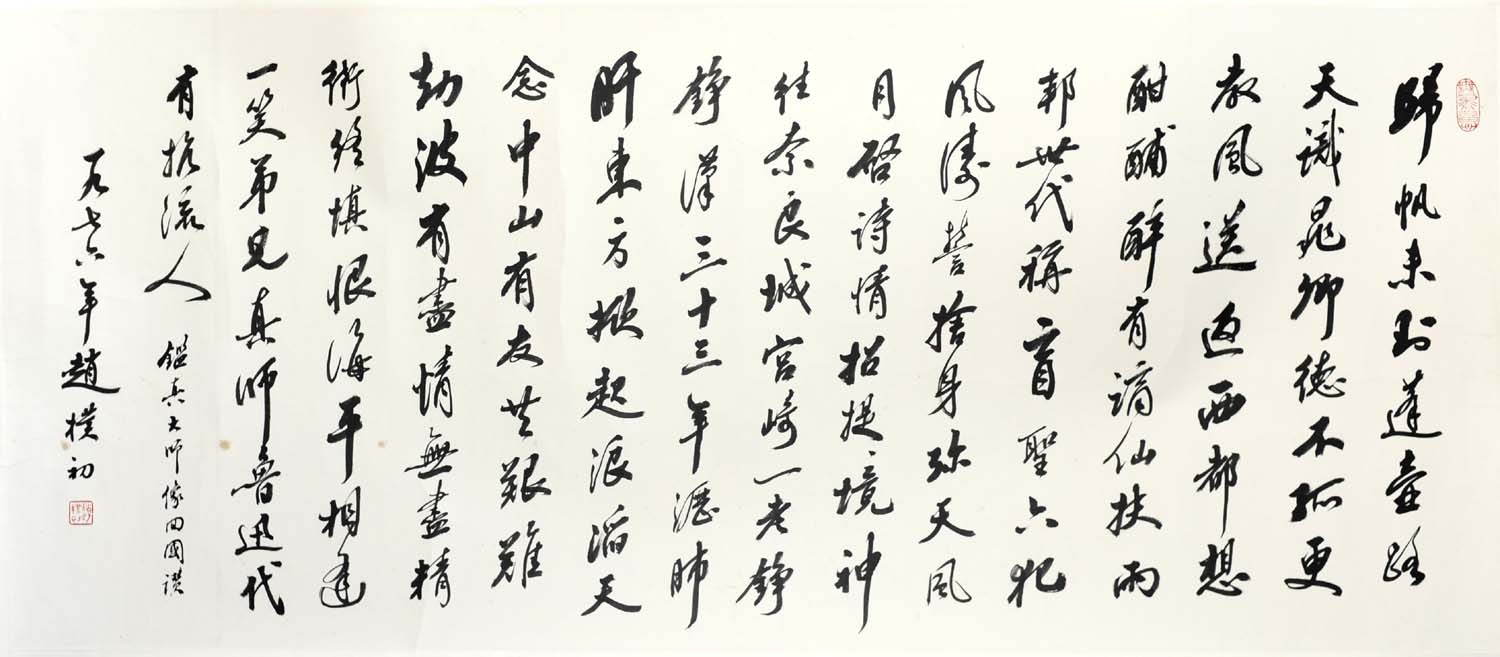 歸帆未到蓬壺路
天識晁卿德不孤更
教風送返西都想
酣酺醉有謫仙扶兩
邦世代稱盲聖六犯
風濤誓捨身弥天風
月啓詩情招提境神
往奈良城宮崎一老錚
錚漢三十三年瀝肺
肝東方掀起浪滔天
念中山有友共艱難
劫波有盡情無盡精
衛終填恨海平相逢
一笑弟兄真師魯迅代
有流人
鑑真大師像回國讚
一九七六年趙樸初